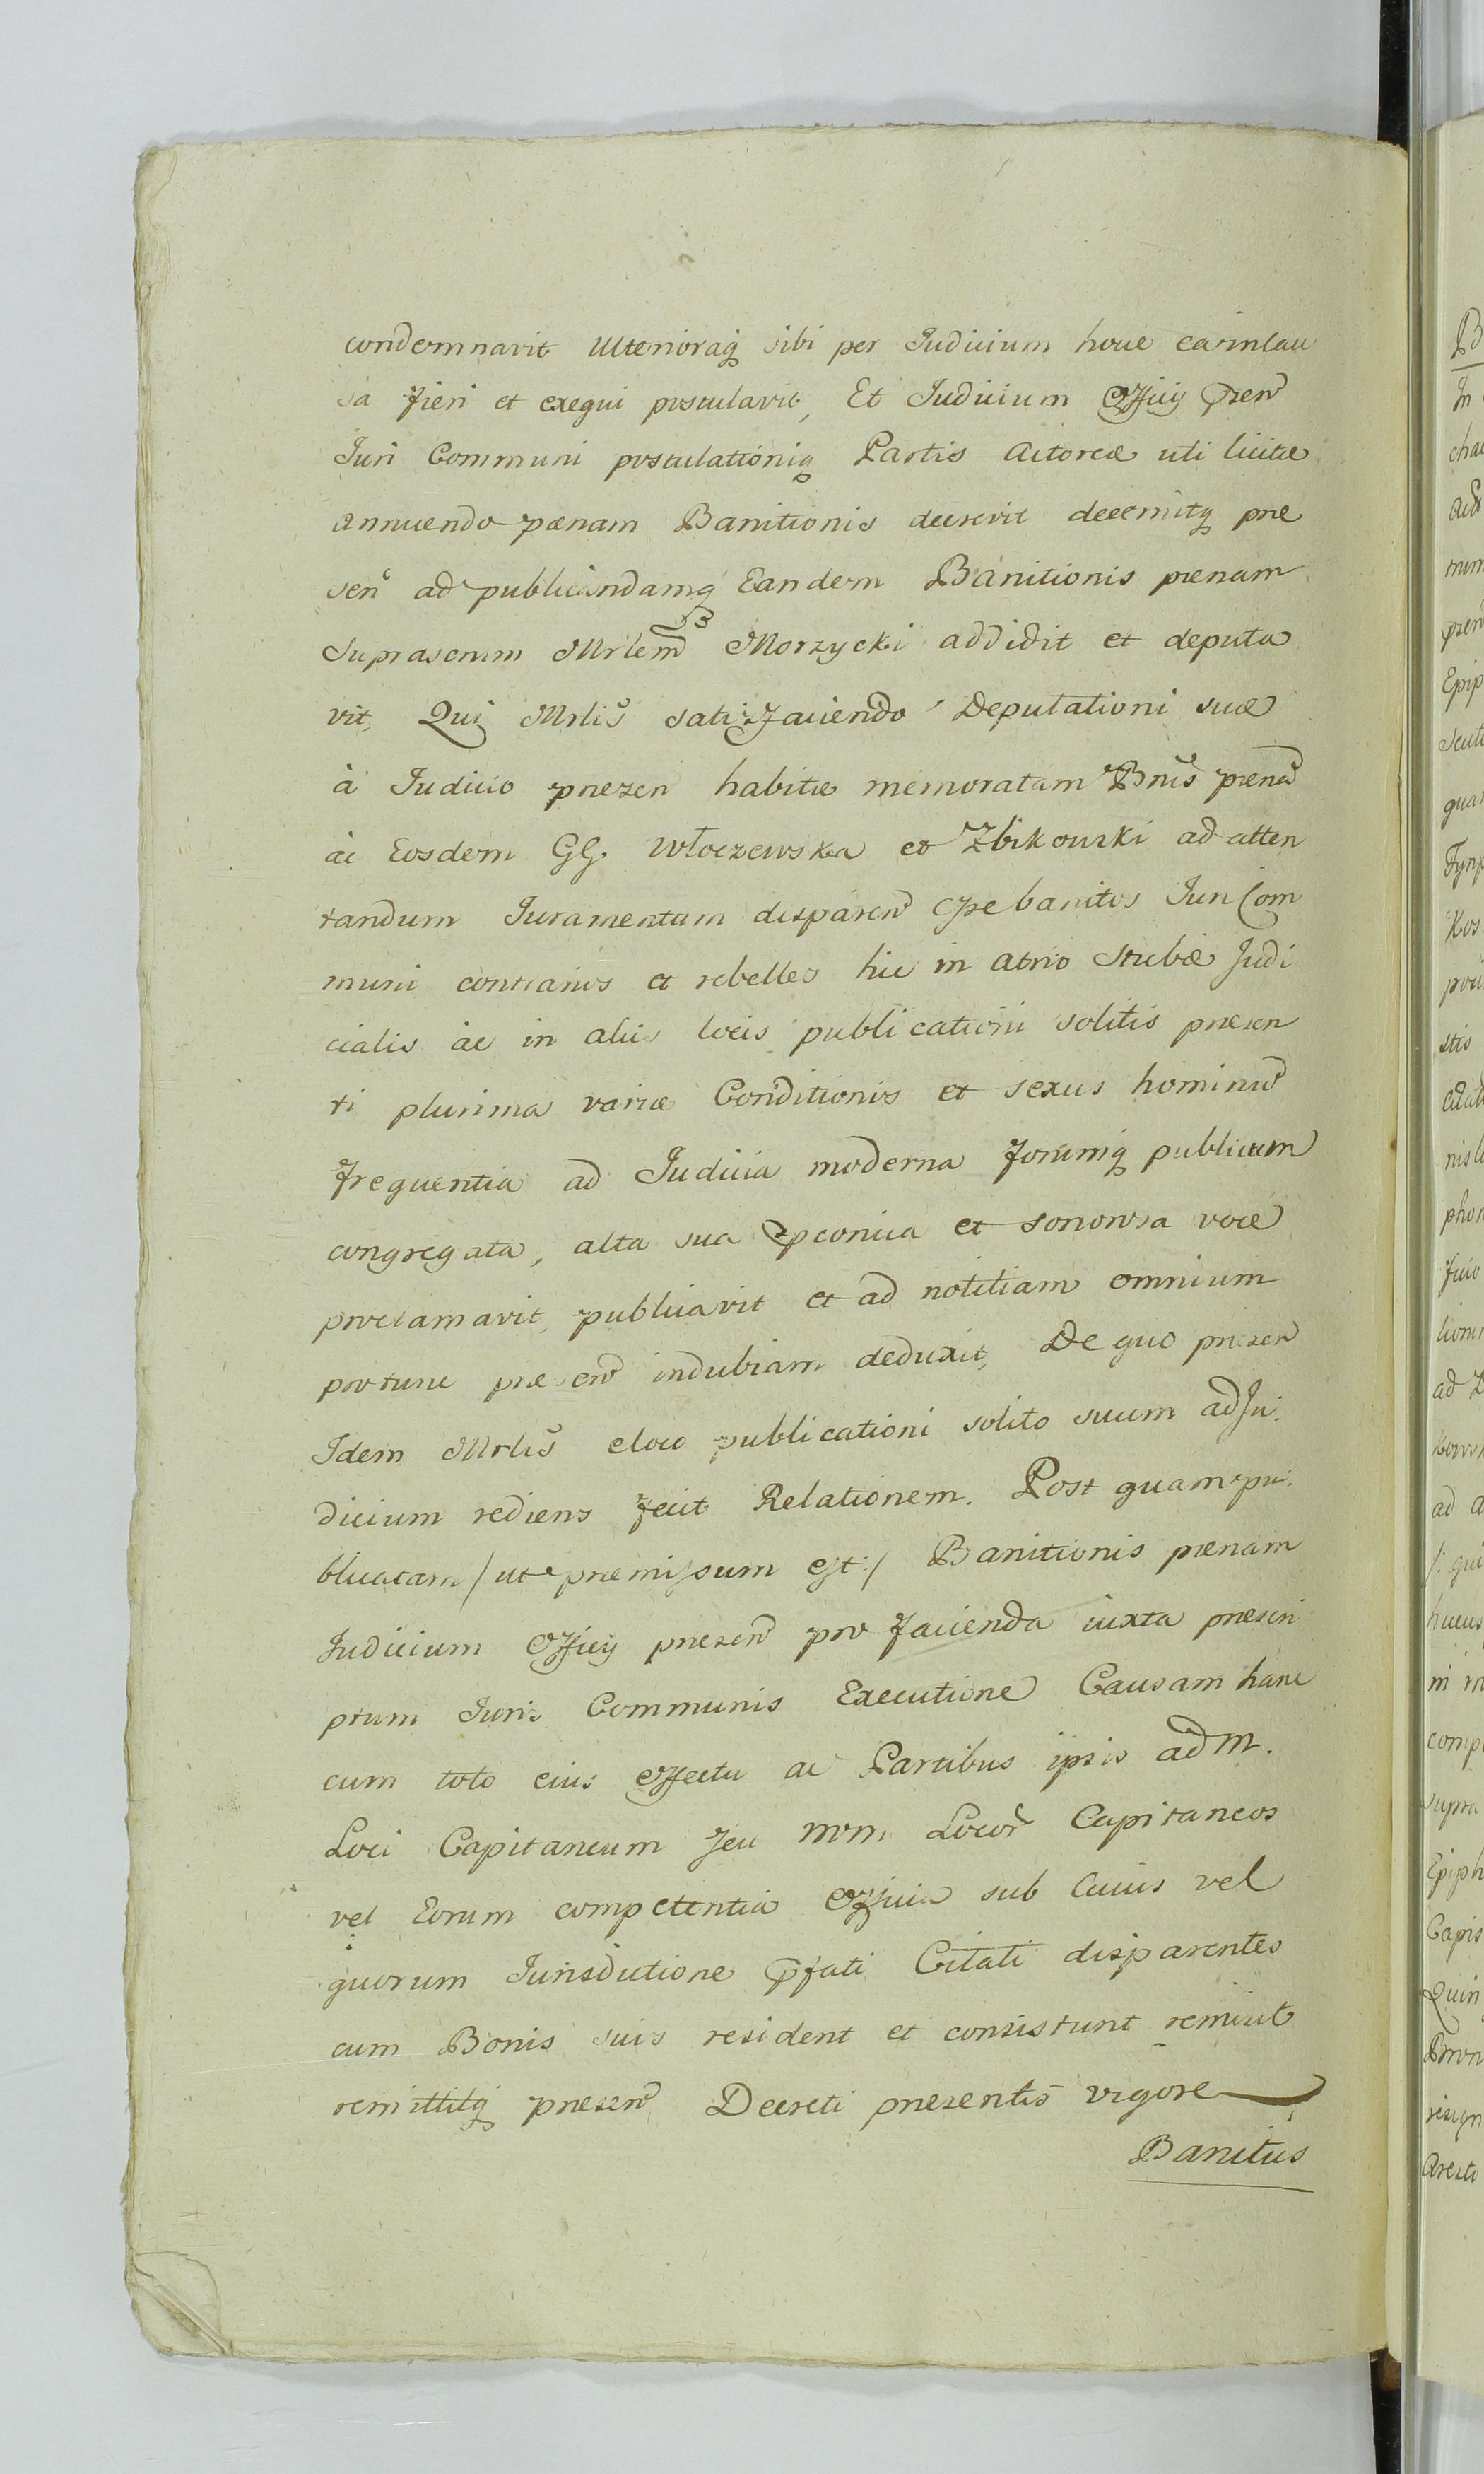 condemnavit ulterioraq sibi per Judicium hocce ea in Cau
sa fieri et exequi postulavit, Et Judicium Officij pren
Juri Communi postulationiq Partis Actoreæ uti licitæ
annuendo pænam Banitionis decrevit decernitq præ
sen ad publicandamq Eandem Banitionis pænam
Suprascrum Mrlem Morzycki addidit et deputa
vit, Qui Mrlis satisfaciendo Deputationi suæ
à Judicio præsen habitæ memoratam Bnis pæna
ac Eosdem GG. Włoczewska et Zbikowski ad atten
tandum Juramentum disparen esse banitos Juri Com
muni contrarios et rebelles hic in atrio Stubæ Judi
cialis ac in aliis locis publicationi solitis præsen
ti plurima variæ Conditionis et sexus hominu
frequentia ad Judicia moderna forumq publicum
congregata, alta sua præconica et sonorosa voce
proclamavit, publicavit et ad notitiam omnium
protunc præsen indubiam deduxit, De quo præsen
Idem Mrlis eloco publicationi solito suum ad Ju.
dicium rediens fecit Relationem. Post quam pu.
blicatam /ut præmissum est:/ Banitionis pænam
Judicium Officij præsen pro facienda iuxta præscri
ptum Juris Communis Executione Causam hanc
cum toto eius effectu ac Partibus ipsis ad M.
Loci Capitaneum seu MM Locor Capitaneos
vel Eorum competentia Officia sub Cuius vel
quorum Jurisdictione pfati Citati disparentes
cum Bonis suis resident et consistunt remisit
remittitq præsen Decreti præsentis vigore
Banitus